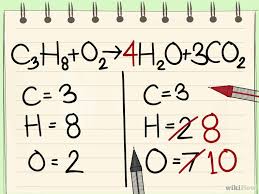 C₃H₈+O₂→4H₂O+3CO₂
C=3 C=3
H=8 H=2 8
O=2 O=7 10
wikiHow